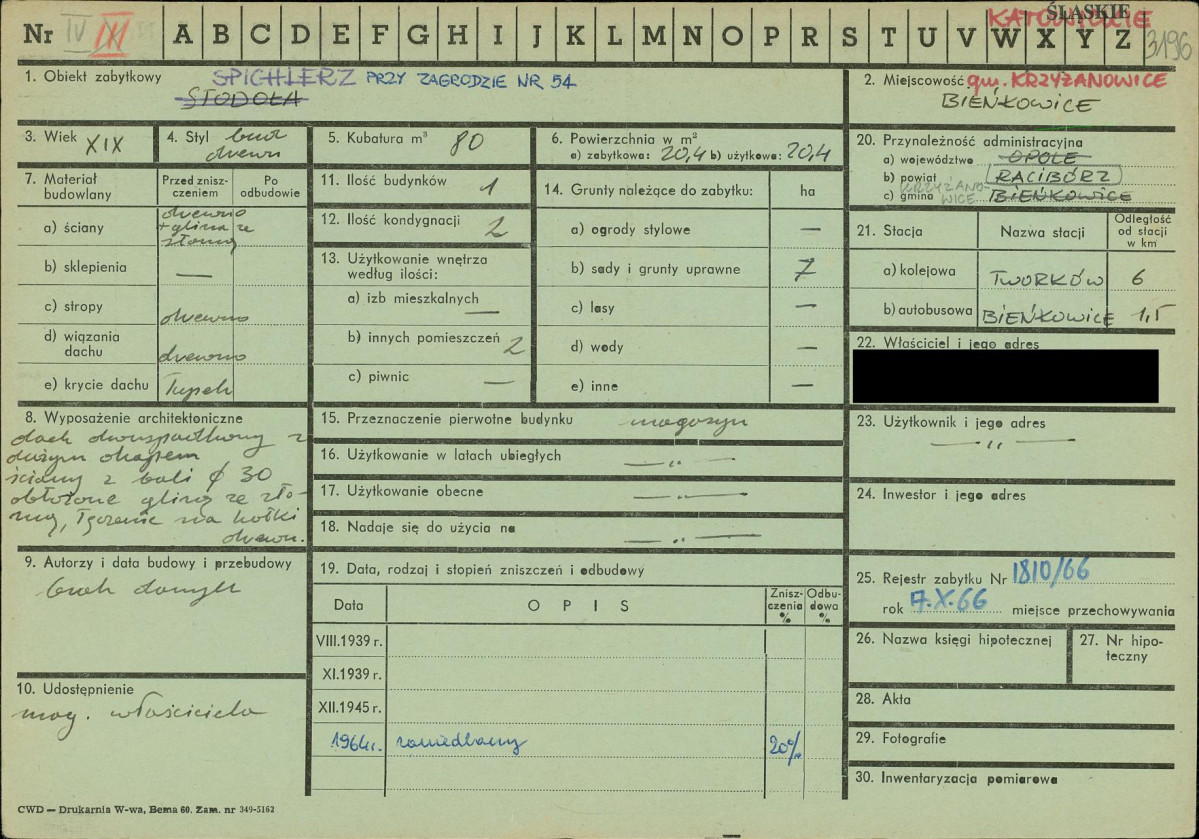 Nr IV III A B C D E F G H I J K L M N O P R S T U V W X Y Z
KATOWICKIE ŚLĄSKIE
3/196
1. Obiekt zabytkowy SPICHLERZ PRZY ZAGRODZIE NR 54
STODOŁA
2. Miejscowość gm. KRZYŻANOWICE
BIEŃKOWICE
3. Wiek XIX
4. Styl bud
drewn
5. Kubatura m³ 80
6. Powierzchnia w m²
a) zabytkowa: 20,4 b) użytkowa: 20,4
7. Materiał budowlany
Przed zniszczeniem
Po odbudowie
a) ściany drewno
+ glina ze
słomą
b) sklepienia —
c) stropy drewno
d) wiązania dachu drewno
e) krycie dachu łupek
8. Wyposażenie architektoniczne
dach dwuspadkowy z
dużym okapem
ściany z bali ϕ 30
obłożone gliną ze sło-
mą, łączenie na kołki
drewn.
9. Autorzy i data budowy i przebudowy
brak danych
10. Udostępnienie
mag. właściciela
11. Ilość budynków 1
12. Ilość kondygnacji 2
13. Użytkowanie wnętrza
według ilości:
a) izb mieszkalnych —
b) innych pomieszczeń 2
c) piwnic —
14. Grunty należące do zabytku: ha
a) ogrody stylowe —
b) sady i grunty uprawne 7
c) lasy —
d) wody —
e) inne —
15. Przeznaczenie pierwotne budynku magazyn
16. Użytkowanie w latach ubiegłych — „ —
17. Użytkowanie obecne — „ —
18. Nadaje się do użycia na — „ —
19. Data, rodzaj i stopień zniszczeń i odbudowy
Data OPIS Zniszczenia % Odbudowa %
VIII.1939 r.
XI.1939 r.
XII.1945 r.
1964r. zaniedbany 20%
20. Przynależność administracyjna
a) województwo OPOLE
b) powiat RACIBÓRZ
c) gmina KRZYŻANO-
WICE BIEŃKOWICE
21. Stacja Nazwa stacji Odległość od stacji w km
a) kolejowa TWORKÓW 6
b) autobusowa BIEŃKOWICE 1,5
22. Właściciel i jego adres
23. Użytkownik i jego adres
— „ —
24. Inwestor i jego adres
25. Rejestr zabytku Nr 1810/66
rok 7.X.66 miejsce przechowywania
26. Nazwa księgi hipotecznej
27. Nr hipo-
teczny
28. Akta
29. Fotografie
30. Inwentaryzacja pomiarowa
CWD — Drukarnia W-wa, Bema 60. Zam. nr 349-5162